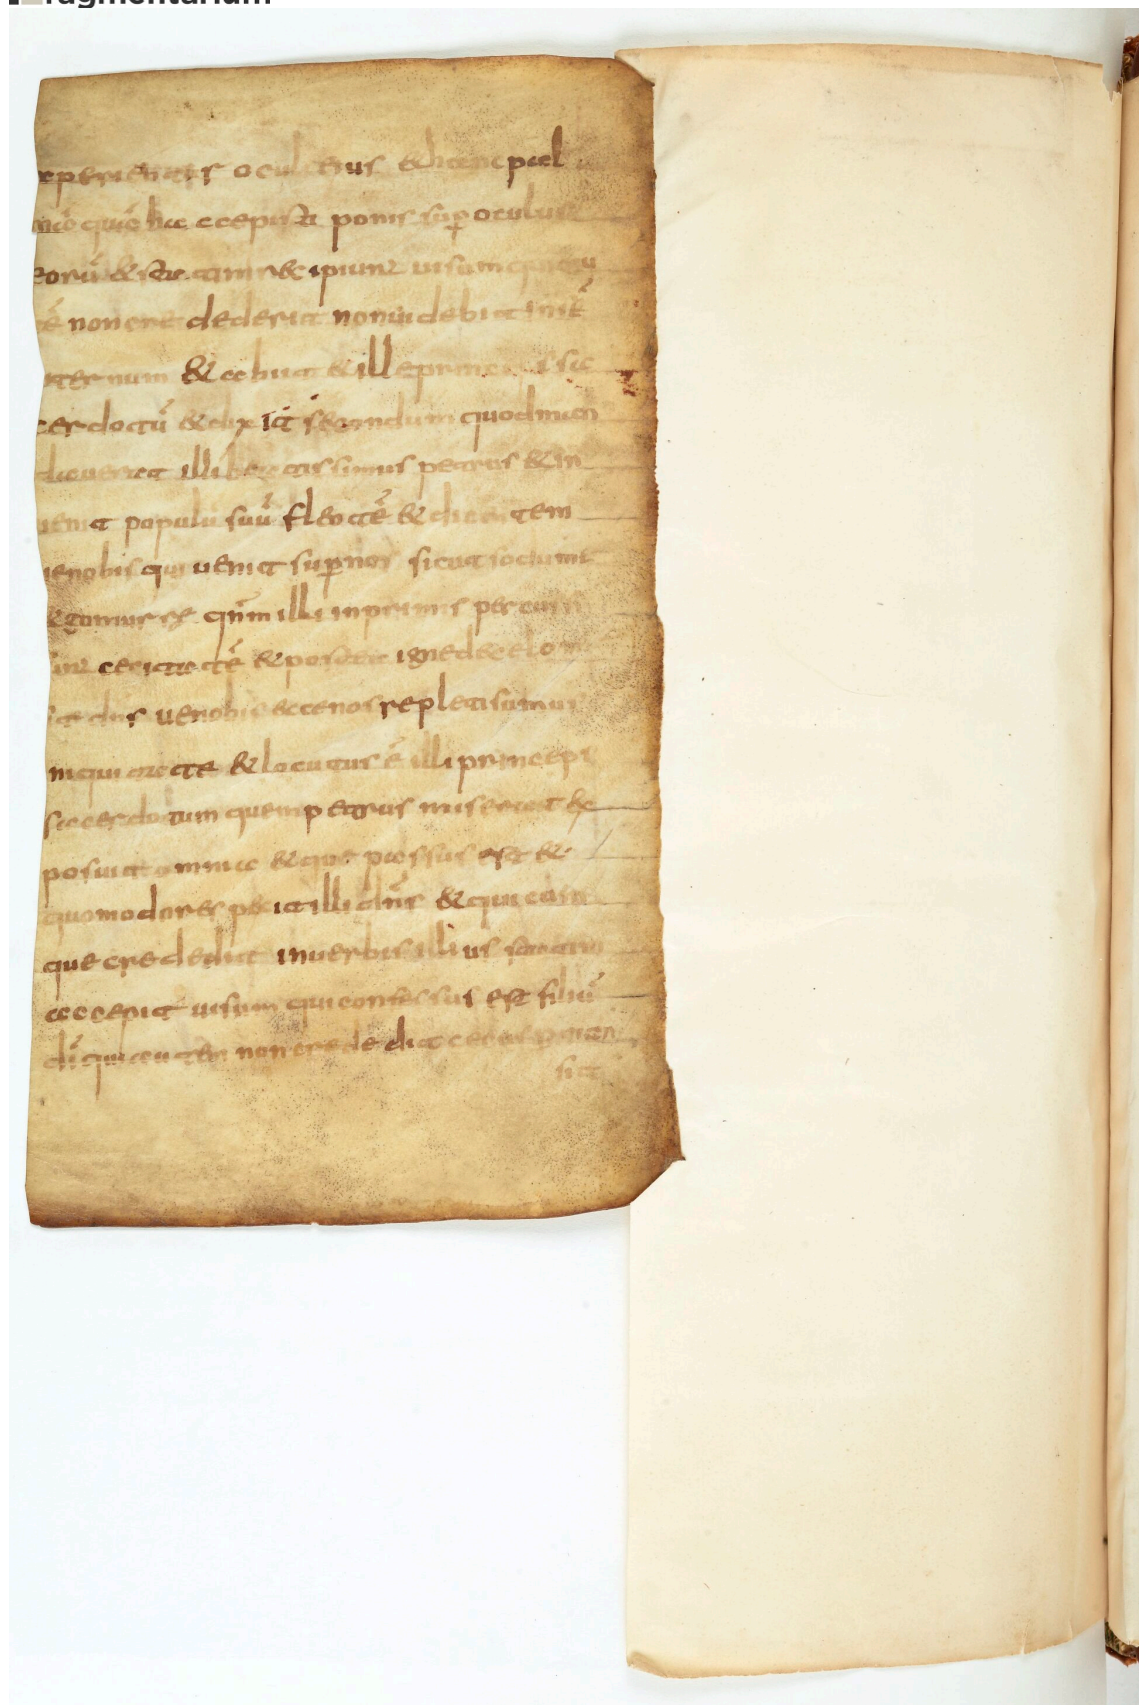 aperientes oculos eius & hanc pal
mā quā hic accepisti ponis sup oculus
eorū & statim recipiunt uisum qui au
tē non crediderit non uidebit in &
ternum & abiit & ille princeps sa
cerdotū & dixit secundum quod man
dauerat illi beatissimus petrus & in
uenit populū suū flentē & dicentem
uenobis qui uenit sup nos sicut sodume
& gomurre qm illi in primis per
cecitatē & postea igne de celo
uenobis ecce nos repleti sumus
iniquitate & locutus ē illi princeps
sacerdotum quem petrus miserat &
posuit omnia & que passus est &
quomodo respexit illi dns & qui cum
que credidit in uerbis illius statim
accepit uisum qui confessus est filiū
dī qui autem non credidit
sit